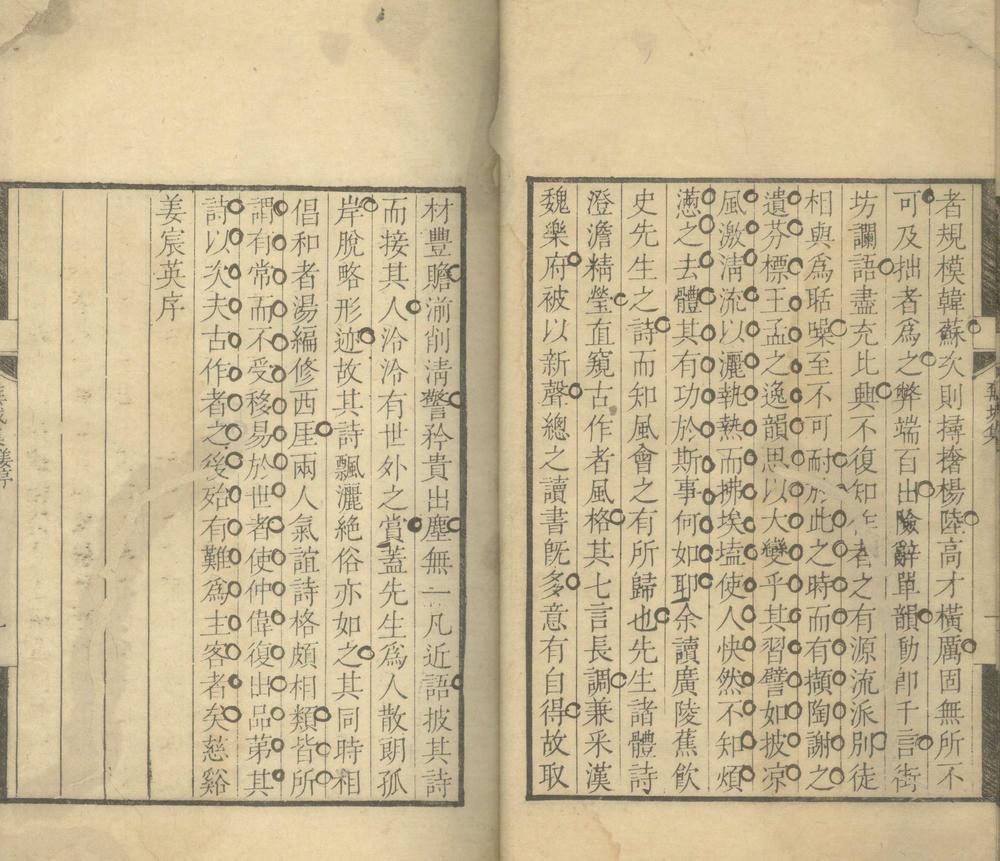 者規模韓蘇次則撏撦楊陸高才橫厲固無所不
可及拙者爲之弊端百出險辭單韻動卽千言街
坊讕語盡充比興不復知作者之有源流派別徒
相與爲聒噪至不可耐於此之時而有擷陶謝之
遺芬標王孟之逸韻思以大變乎其習譬如披凉
風激淸流以灑執熱而拂埃壒使人快然不知煩
懣之去體其有功於斯事何如耶余讀廣陵蕉飮
史先生之詩而知風會之有所歸也先生諸體詩
澄澹精瑩直窺古作者風格其七言長調兼采漢
魏樂府被以新聲總之讀書旣多意有自得故取
材豐贍湔削淸警矜貴出塵無一凡近語披其詩
而接其人泠泠有世外之賞蓋先生爲人散朗孤
岸脫略形迹故其詩飄灑絕俗亦如之其同時相
倡和者湯編修西厓兩人氣誼詩格頗相類皆所
謂有常而不受移易於世者使仲偉復出品第其
詩以次夫古作者之後殆有難爲主客者矣慈谿
姜宸英序